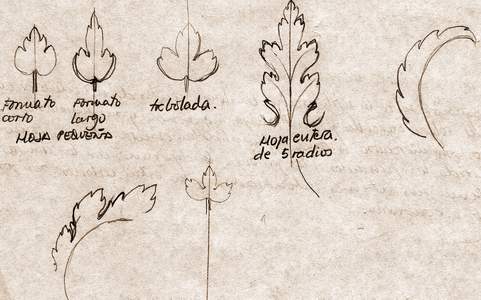 Formato
corto
Formato
largo
HOJA PEQUEÑA
trebolada.
Hoja entera.
de 5 radios